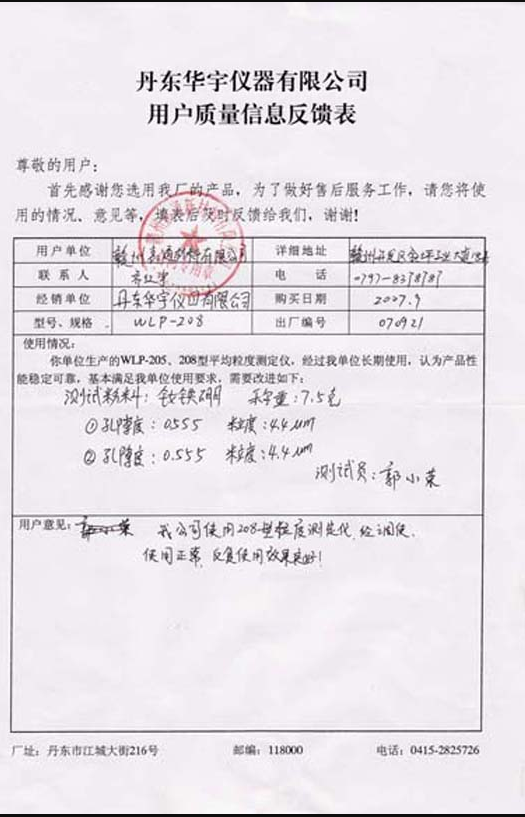 丹东华宇仪器有限公司
用户质量信息反馈表
尊敬的用户:
首先感谢您选用我厂的产品，为了做好售后服务工作，请您将使
用的情况、意见等，填表后及时反馈给我们，谢谢!
用户单位 赣州 有限公司 详细地址 赣州开发区 工业大道
联系人 电话 0797-8378787
经销单位 丹东华宇仪器有限公司 购买日期 2007.9
型号、规格 WLP-208 出厂编号 070921
使用情况:
你单位生产的WLP-205、208型平均粒度测定仪，经过我单位长期使用，认为产品性
能稳定可靠，基本满足我单位使用要求，需要改进如下:
测试粉料: 钕铁硼 称重:7.5克
①孔隙度: 0.555 粒度:4.4um
②孔隙度: 0.555 粒度:4.4um
测试员:郭小荣
用户意见: 郭小荣 我公司使用208型粒度测定仪,经调使,
使用正常,反复使用效果良好!
厂址: 丹东市江城大街216号 邮编: 118000 电话: 0415-2825726